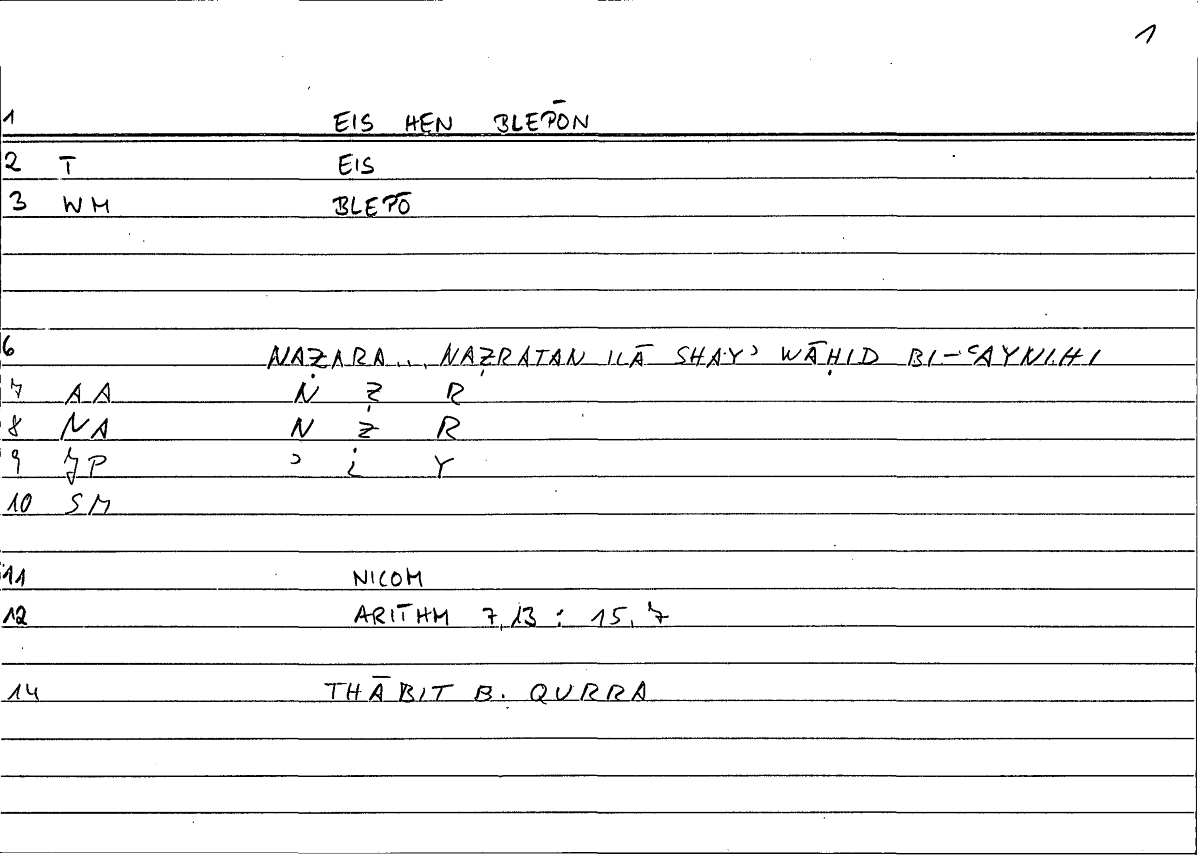 1
1 EIS HEN BLEPŌN
2 T EIS
3 WM BLEPŌ
6 NAẒARA... NAẒRATAN ILĀ SHAYʾ WĀḤID BI-ʿAYNIHI
7 AA N Ẓ R
8 NA N Ẓ R
9 JP ʾ i Y
10 SM
11 NICOM
12 ARITHM 7,13 : 15,7
14 THĀBIT B. QURRA